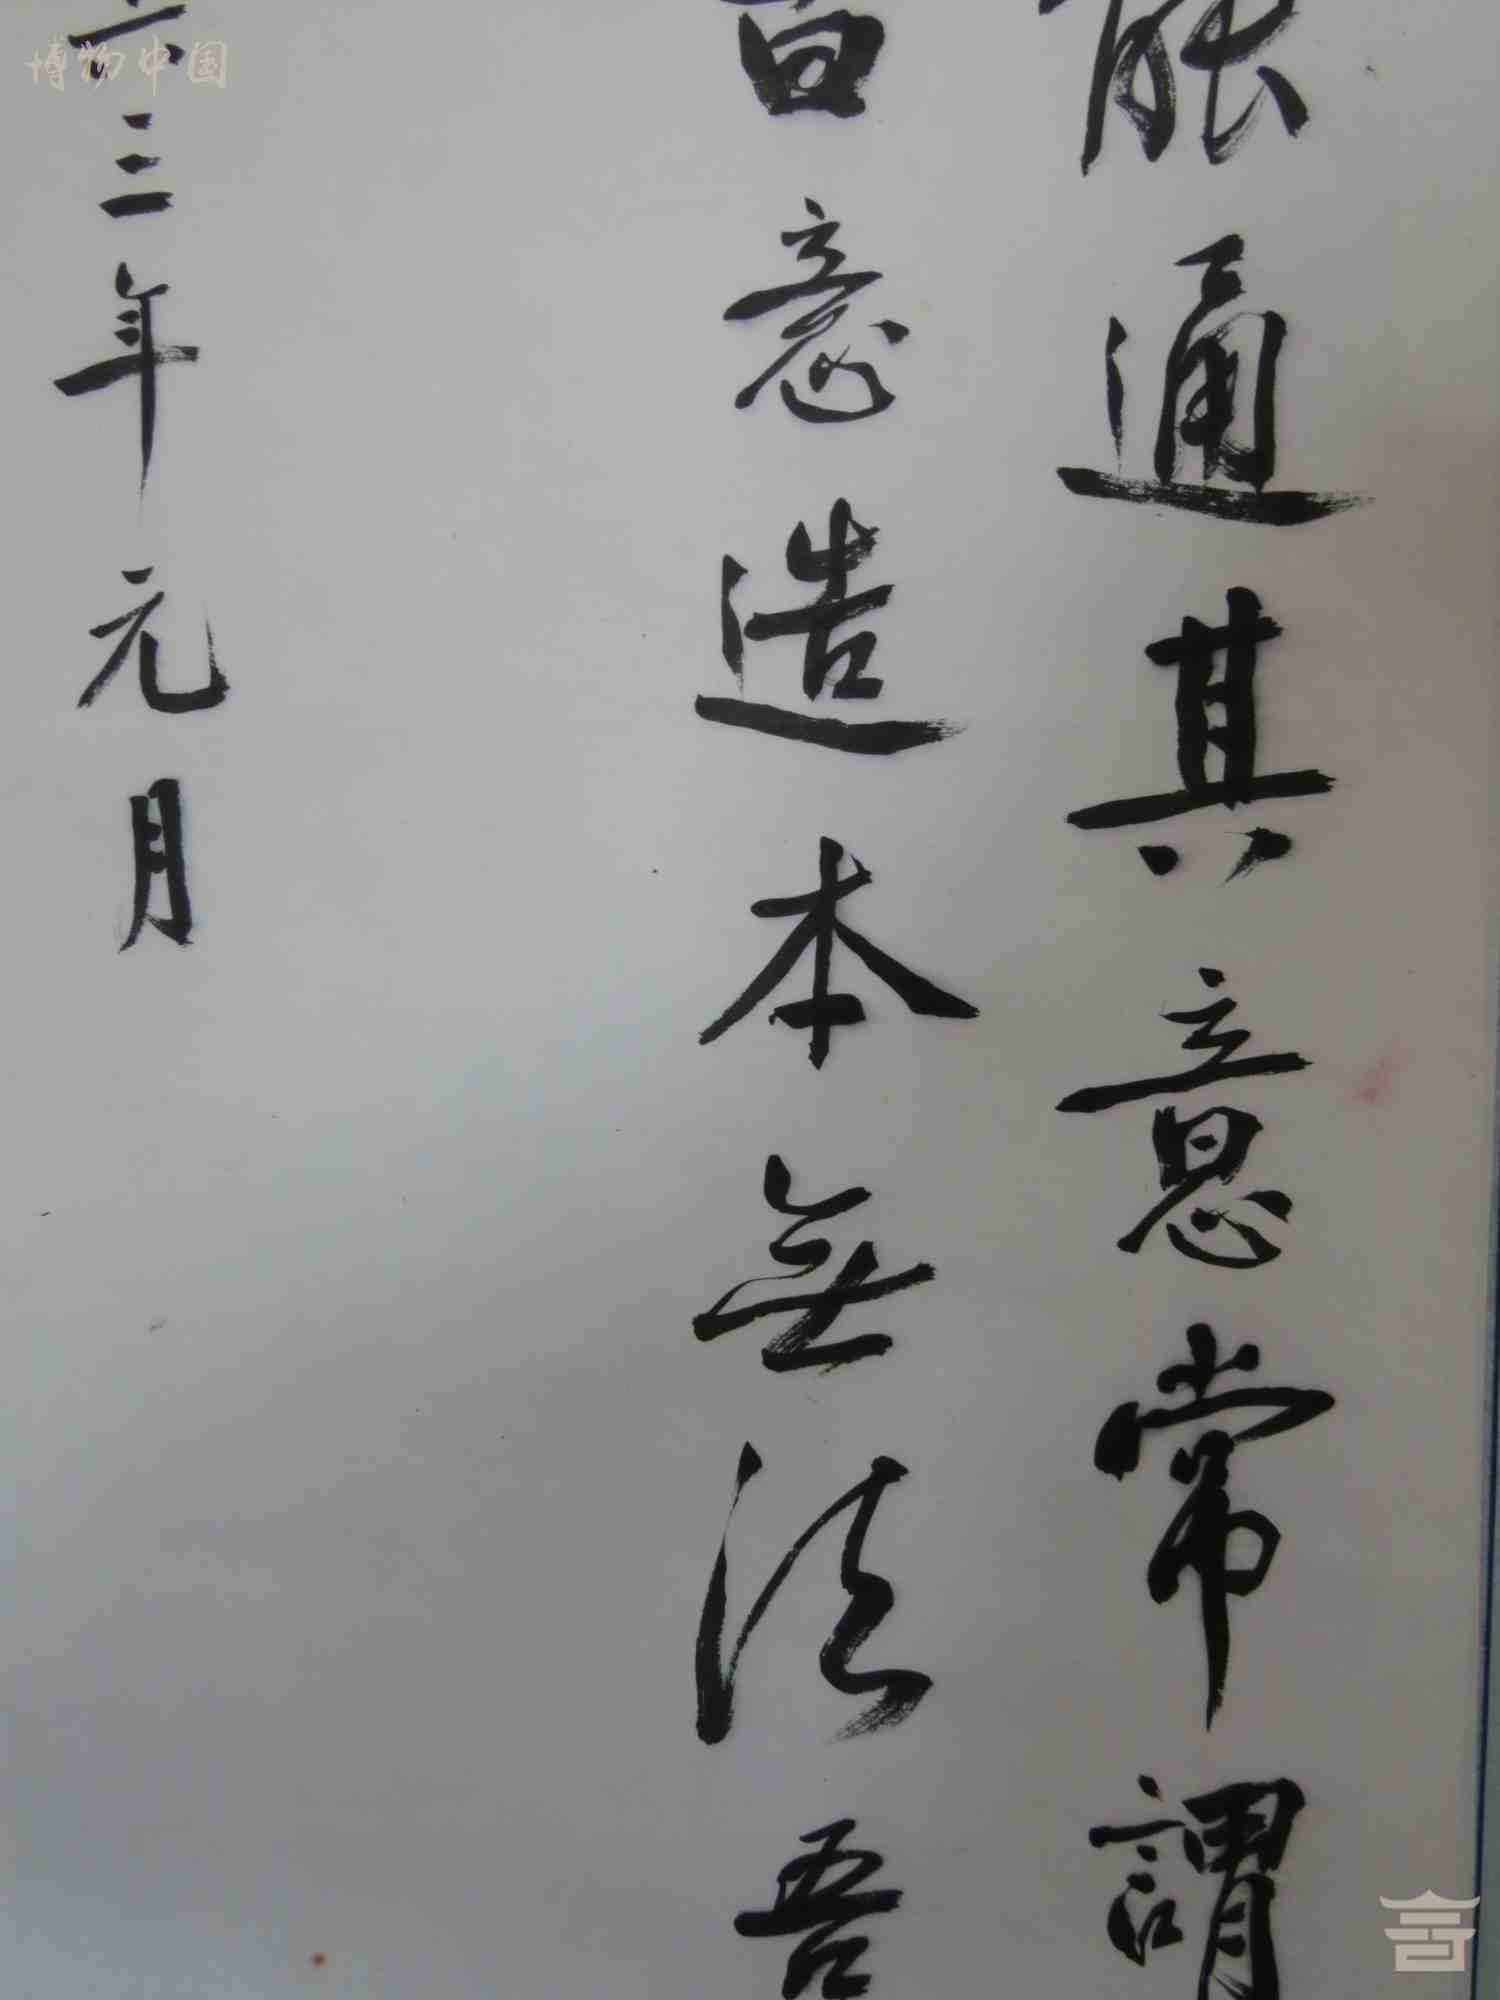 能通其意常謂
意造本無法吾
三年元月
博物中国